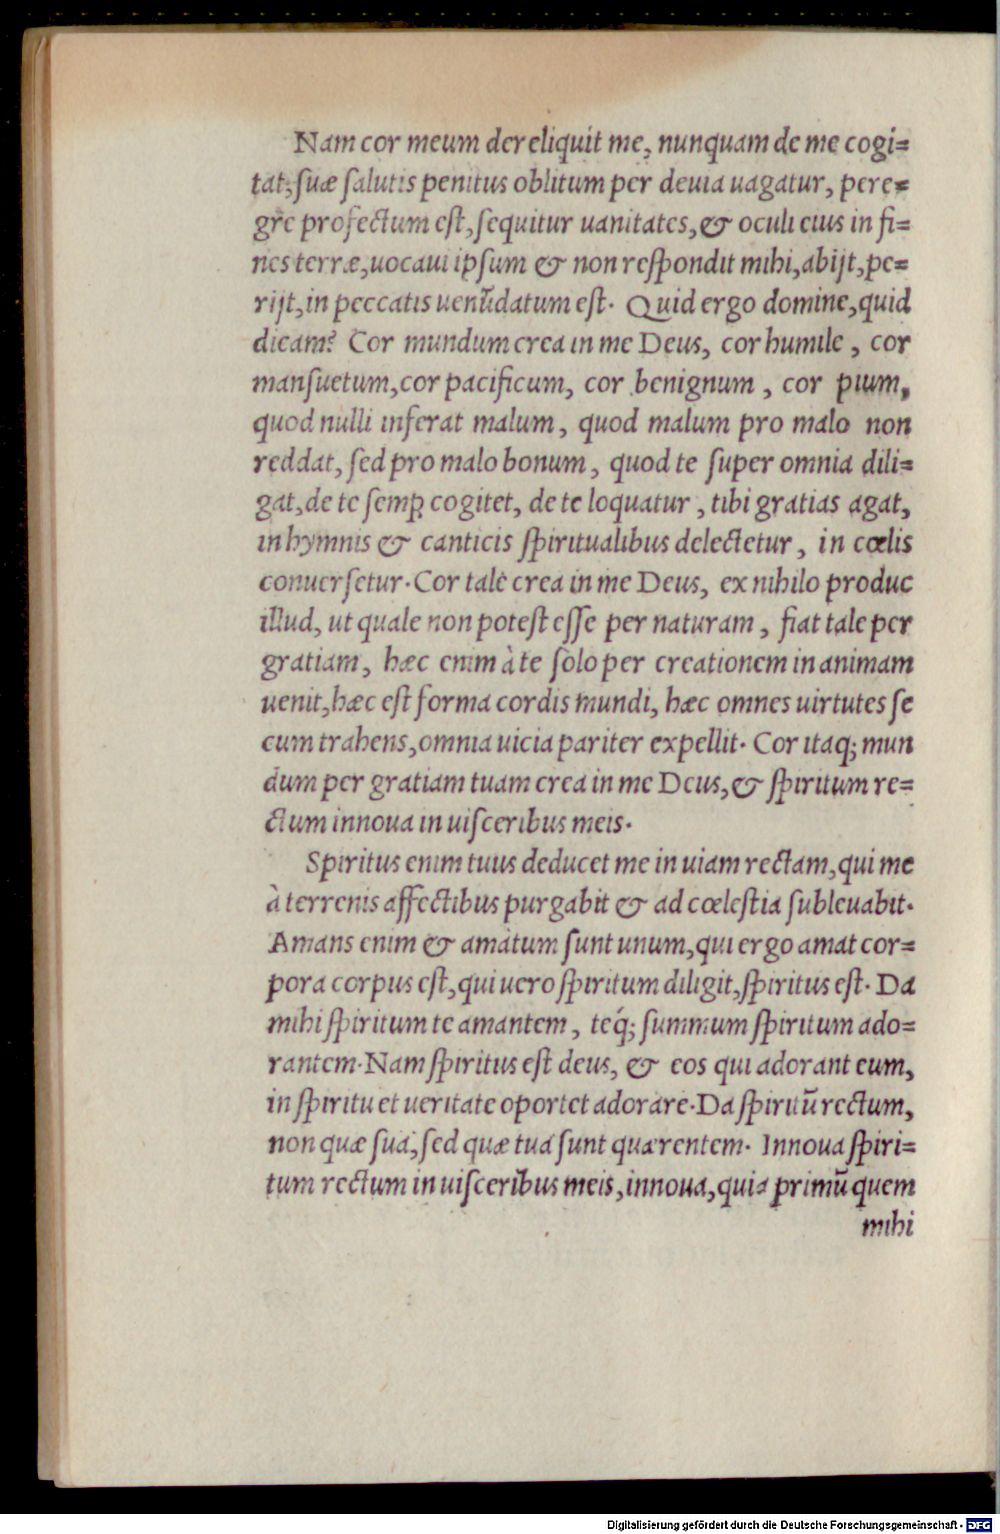 Nam cor meum dereliquit me, nunquam de me cogi=
tat, suæ salutis penitus oblitum per deuia uagatur, pere=
gre profectum est, sequitur uanitates, & oculi eius in fi=
nes terræ, uocaui ipsum & non respondit mihi, abijt, pe=
rijt, in peccatis uenũdatum est. Quid ergo domine, quid
dicam? Cor mundum crea in me Deus, cor humile, cor
mansuetum, cor pacificum, cor benignum, cor pium,
quod nulli inferat malum, quod malum pro malo non
reddat, sed pro malo bonum, quod te super omnia dili=
gat, de te semꝑ cogitet, de te loquatur, tibi gratias agat,
in hymnis & canticis spiritualibus delectetur, in cœlis
conuersetur. Cor tale crea in me Deus, ex nihilo produc
illud, ut quale non potest esse per naturam, fiat tale per
gratiam, hæc enim à te solo per creationem in animam
uenit, hæc est forma cordis mundi, hæc omnes uirtutes se
cum trahens, omnia uicia pariter expellit. Cor itaq; mun
dum per gratiam tuam crea in me Deus, & spiritum re=
ctum innoua in uisceribus meis.
Spiritus enim tuus deducet me in uiam rectam, qui me
à terrenis affectibus purgabit & ad cœlestia subleuabit.
Amans enim & amatum sunt unum, qui ergo amat cor=
pora corpus est, qui uero spiritum diligit, spiritus est. Da
mihi spiritum te amantem, teq́; summum spiritum ado=
rantem. Nam spiritus est deus, & eos qui adorant eum,
in spiritu et ueritate oportet adorare. Da spiritũ rectum,
non quæ sua, sed quæ tua sunt quærentem. Innoua spiri=
tum rectum in uisceribus meis, innoua, quia primũ quem
mihi
Digitalisierung gefördert durch die Deutsche Forschungsgemeinschaft - DFG